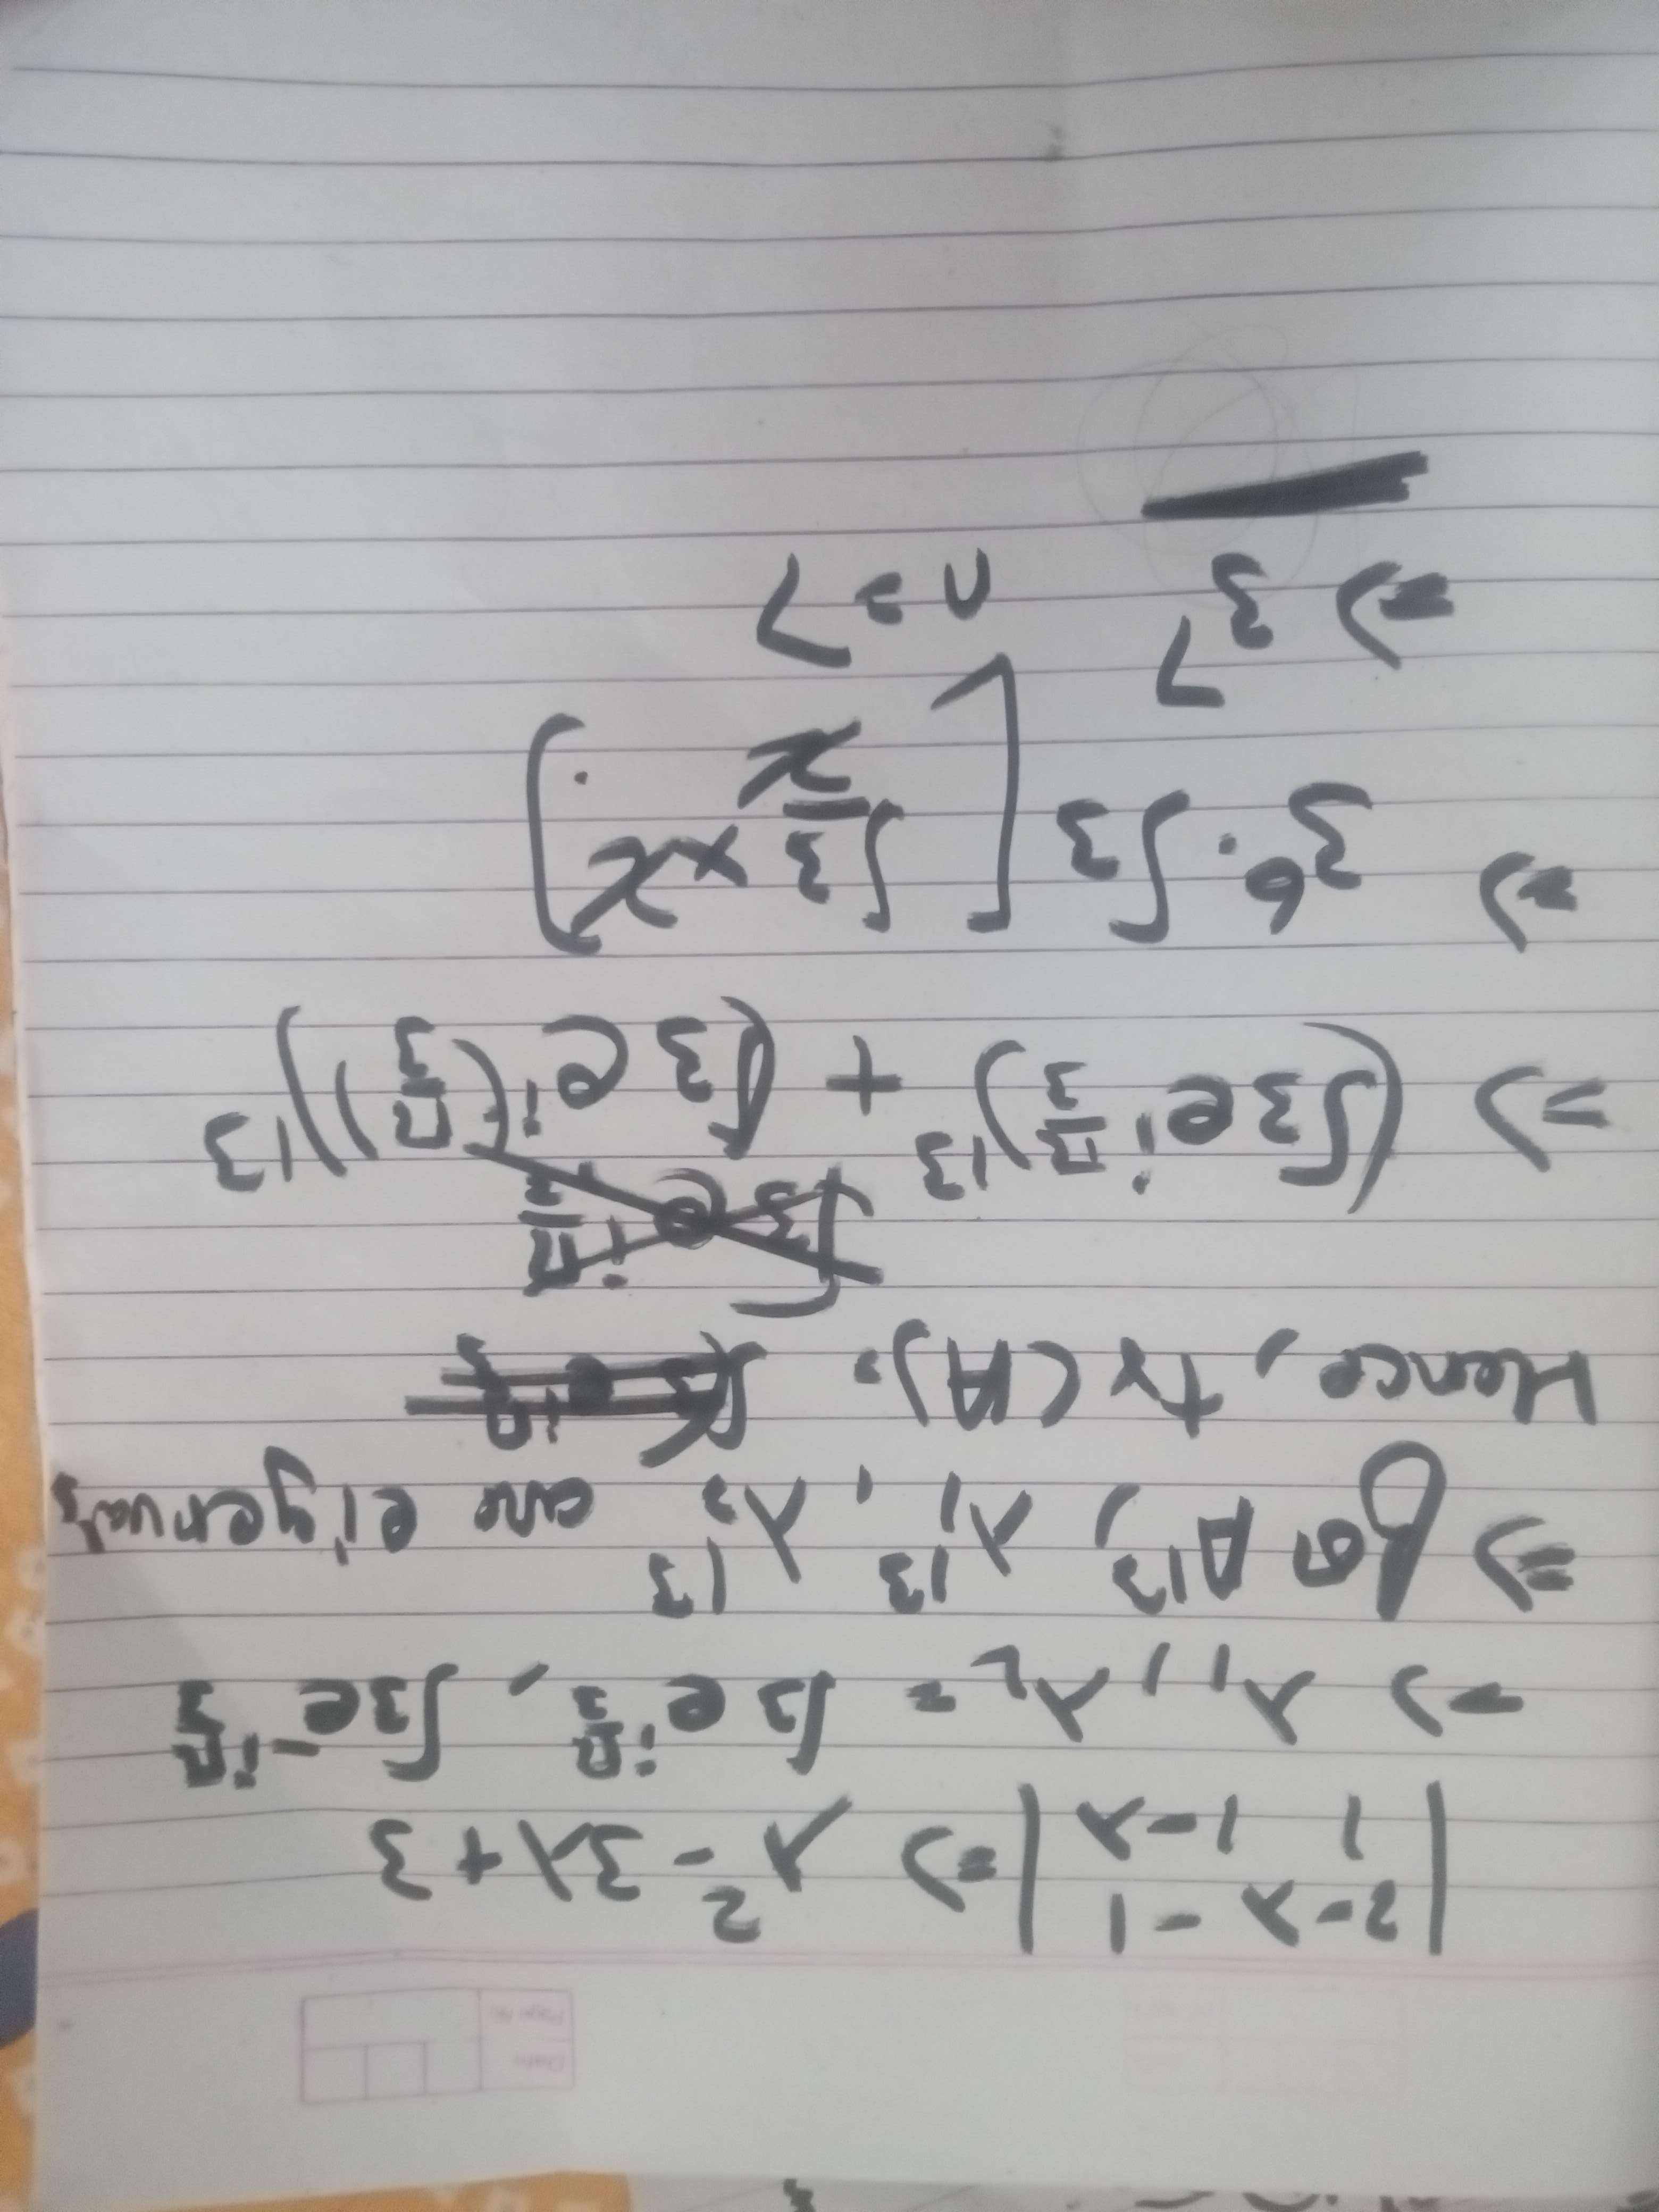 Date:
Page No:
| 2-λ -1 |
| 1 1-λ | => λ² - 3λ + 3
=> λ₁, λ₂ = √3 e^{iπ/3}, √3 e^{-iπ/3}
=> for A¹³, λ₁¹³, λ₂¹³ are eigenvals
Hence, tr(A)=
√3 e^{iπ/3}
=> (√3 e^{iπ/3})¹³ + (√3 e^{i(-π/3)})¹³
=> 3⁶·√3 [√3/2 × 2]
=> 3⁷ n=7